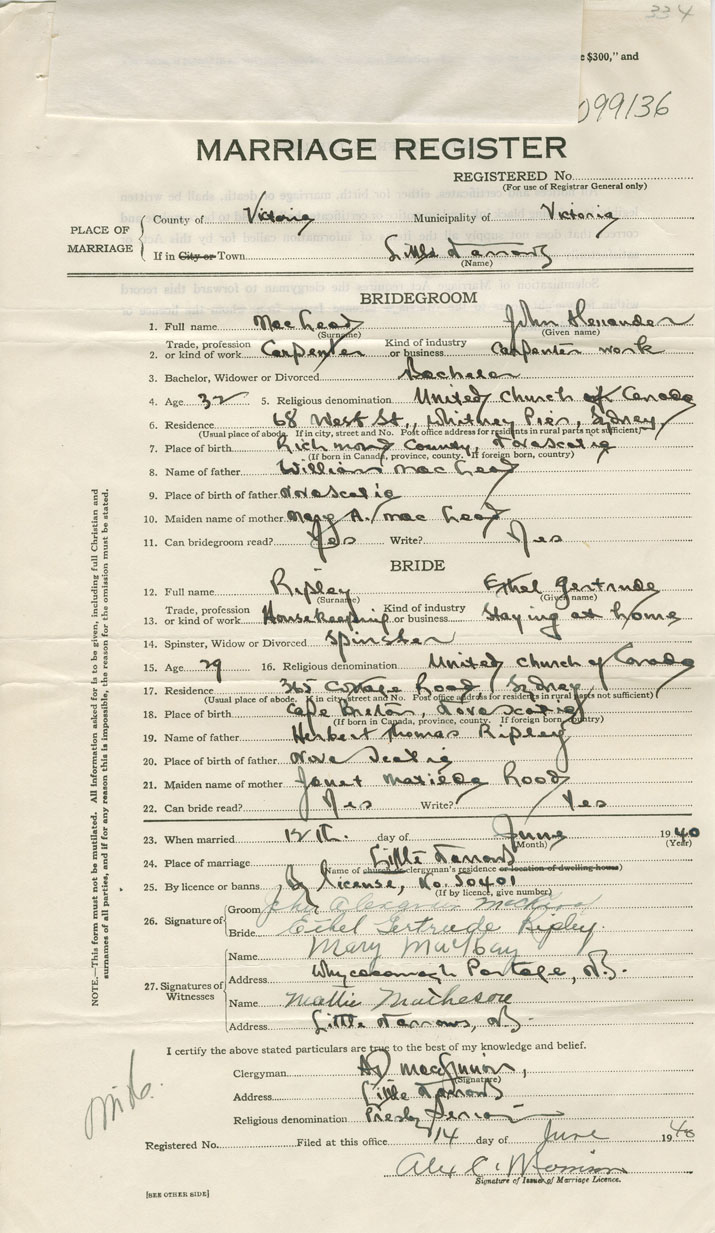 334
e $300," and
99136
MARRIAGE REGISTER
REGISTERED No.
(For use of Registrar General only)
PLACE OF MARRIAGE
County of Victoria Municipality of Victoria
If in City or Town Little Narrows
(Name)
BRIDEGROOM
1. Full name MacLeod John Alexander
(Surname) (Given name)
2. Trade, profession or kind of work Carpenter Kind of industry or business carpenter work
3. Bachelor, Widower or Divorced Bachelor
4. Age 32 5. Religious denomination United Church of Canada
6. Residence 68 West St., Whitney Pier, Sydney
(Usual place of abode. If in city, street and No. Post office address for residents in rural parts not sufficient)
7. Place of birth Richmond County, Nova Scotia
(If born in Canada, province, county. If foreign born, country)
8. Name of father William MacLeod
9. Place of birth of father Nova Scotia
10. Maiden name of mother Mary A. MacLeod
11. Can bridegroom read? Yes Write? Yes
BRIDE
12. Full name Ripley Ethel Gertrude
(Surname) (Given name)
13. Trade, profession or kind of work Housekeeping Kind of industry or business Staying at home
14. Spinster, Widow or Divorced Spinster
15. Age 29 16. Religious denomination United Church of Canada
17. Residence 365 Cottage Road, Sydney
(Usual place of abode. If in city, street and No. Post office address for residents in rural parts not sufficient)
18. Place of birth Cape Breton, Nova Scotia
(If born in Canada, province, county. If foreign born, country)
19. Name of father Herbert Thomas Ripley
20. Place of birth of father Nova Scotia
21. Maiden name of mother Janet Matilda Hood
22. Can bride read? Yes Write? Yes
23. When married 12th. day of June 1940
(Month) (Year)
24. Place of marriage Little Narrows
Name of church or clergyman's residence or location of dwelling house)
25. By licence or banns By license, No. 50401
(If by licence, give number)
26. Signature of
Groom John Alexander MacLeod
Bride Ethel Gertrude Ripley.
27. Signatures of Witnesses
Name Mary MacKay
Address Whycocomagh Portage, N.S.
Name Mattie Matheson
Address Little Narrows, N.S.
I certify the above stated particulars are true to the best of my knowledge and belief.
Clergyman
(Signature)
Address Little Narrows
Religious denomination Presbyterian
Registered No. Filed at this office 14 day of June 1940
Alex C. Morrison
Signature of Issuer of Marriage Licence.
[SEE OTHER SIDE]
NOTE.—This form must not be mutilated. All information asked for is to be given, including full Christian and
surnames of all parties, and if for any reason this is impossible, the reason for the omission must be stated.